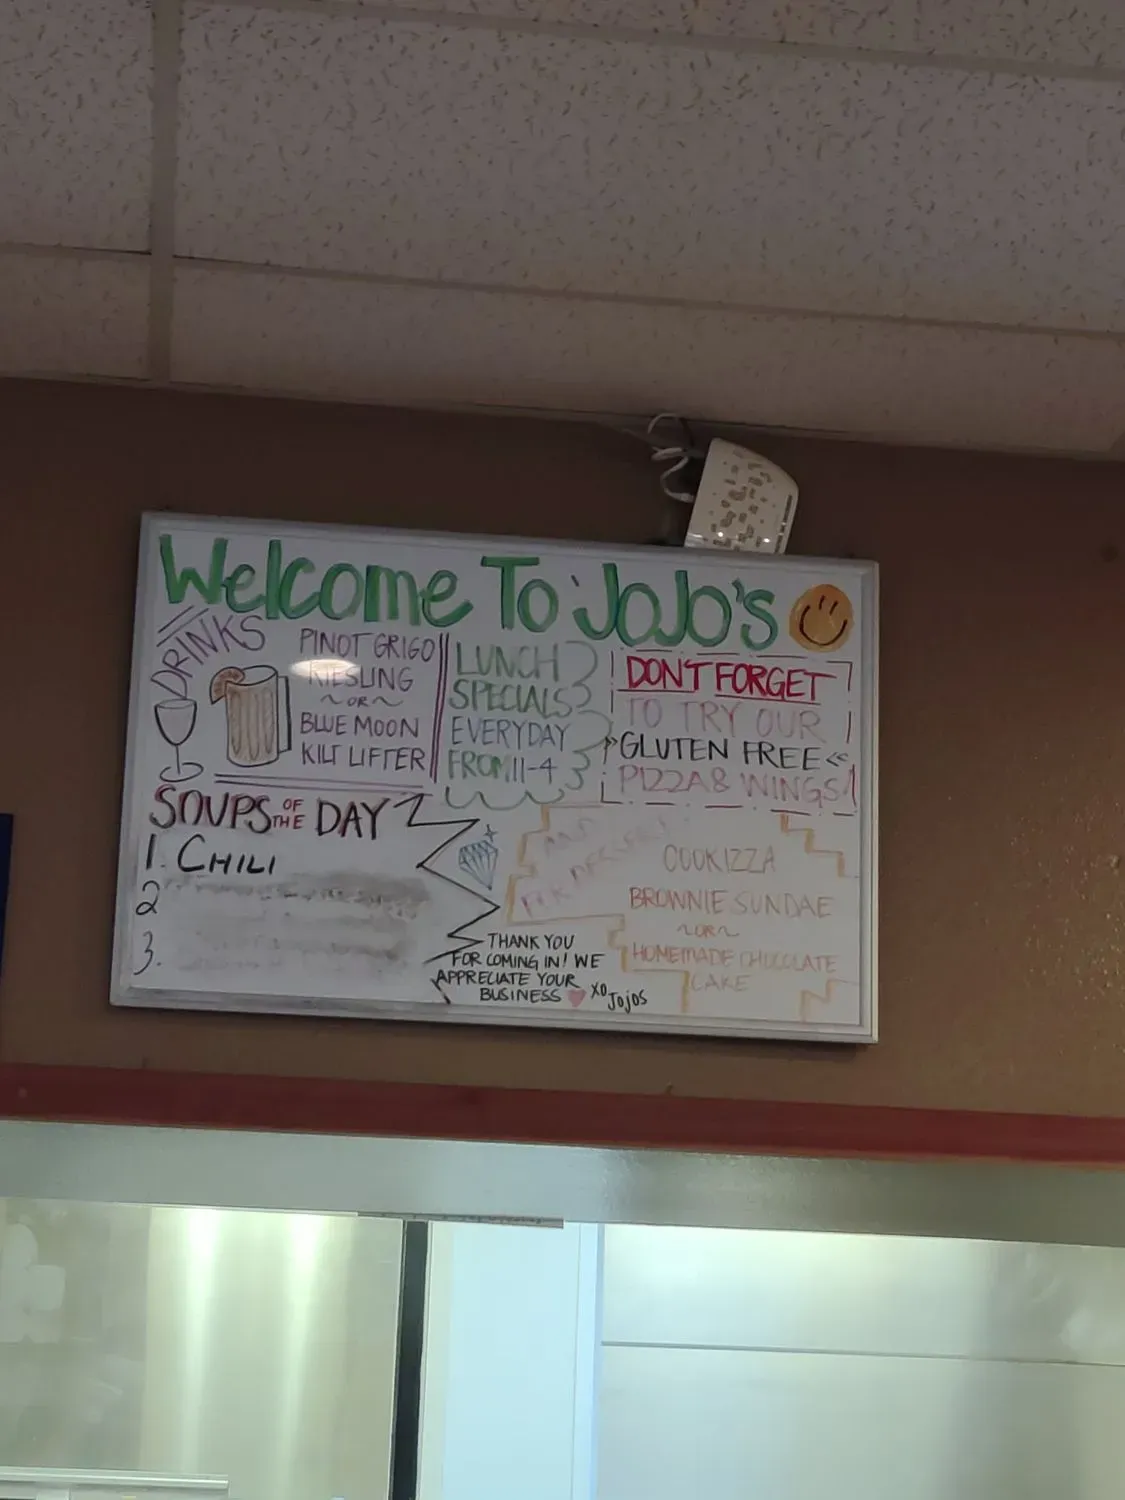 Welcome To JoJo's
DRINKS
PINOT GRIGO
RIESLING
~OR~
BLUE MOON
KILT LIFTER
LUNCH
SPECIALS
EVERYDAY
FROM 11-4
DONT FORGET
TO TRY OUR
GLUTEN FREE
PIZZA & WINGS
SOUPS OF THE DAY
1. CHILI
2
3.
THANK YOU
FOR COMING IN! WE
APPRECIATE YOUR
BUSINESS XO
JoJos
AND
FOR DESSERT
COOKIZZA
BROWNIE SUNDAE
~OR~
HOMEMADE CHOCOLATE
CAKE